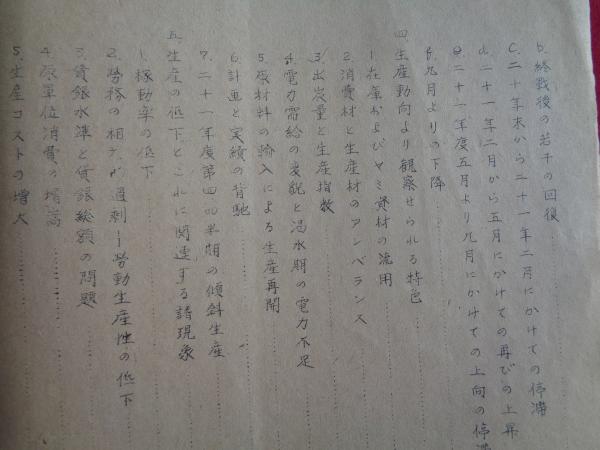 b. 終戦後の若干の回復
C. 二十年末から二十一年二月にかけての停滞
d. 二十一年二月から五月にかけての再びの上昇
e. 二十一年度五月より九月にかけての上向の停滞
f. 九月よりの下降
四. 生産動向より観察せられる特色
1. 在庫およびヤミ資材の流用
2. 消費材と生産材のアンバランス
3. 出炭量と生産指数
4. 電力需給の変貌と渇水期の電力不足
5. 原材料の輸入による生産再開
6. 計画と実績の背馳
7. 二十一年度第四四半期の傾斜生産
五. 生産の低下とこれに関連する諸現象
1. 稼動率の低下
2. 労務の相対的過剰ー労動生産性の低下
3. 賃銀水準と賃銀総額の問題
4. 原単位消費の増嵩
5. 生産コストの増大